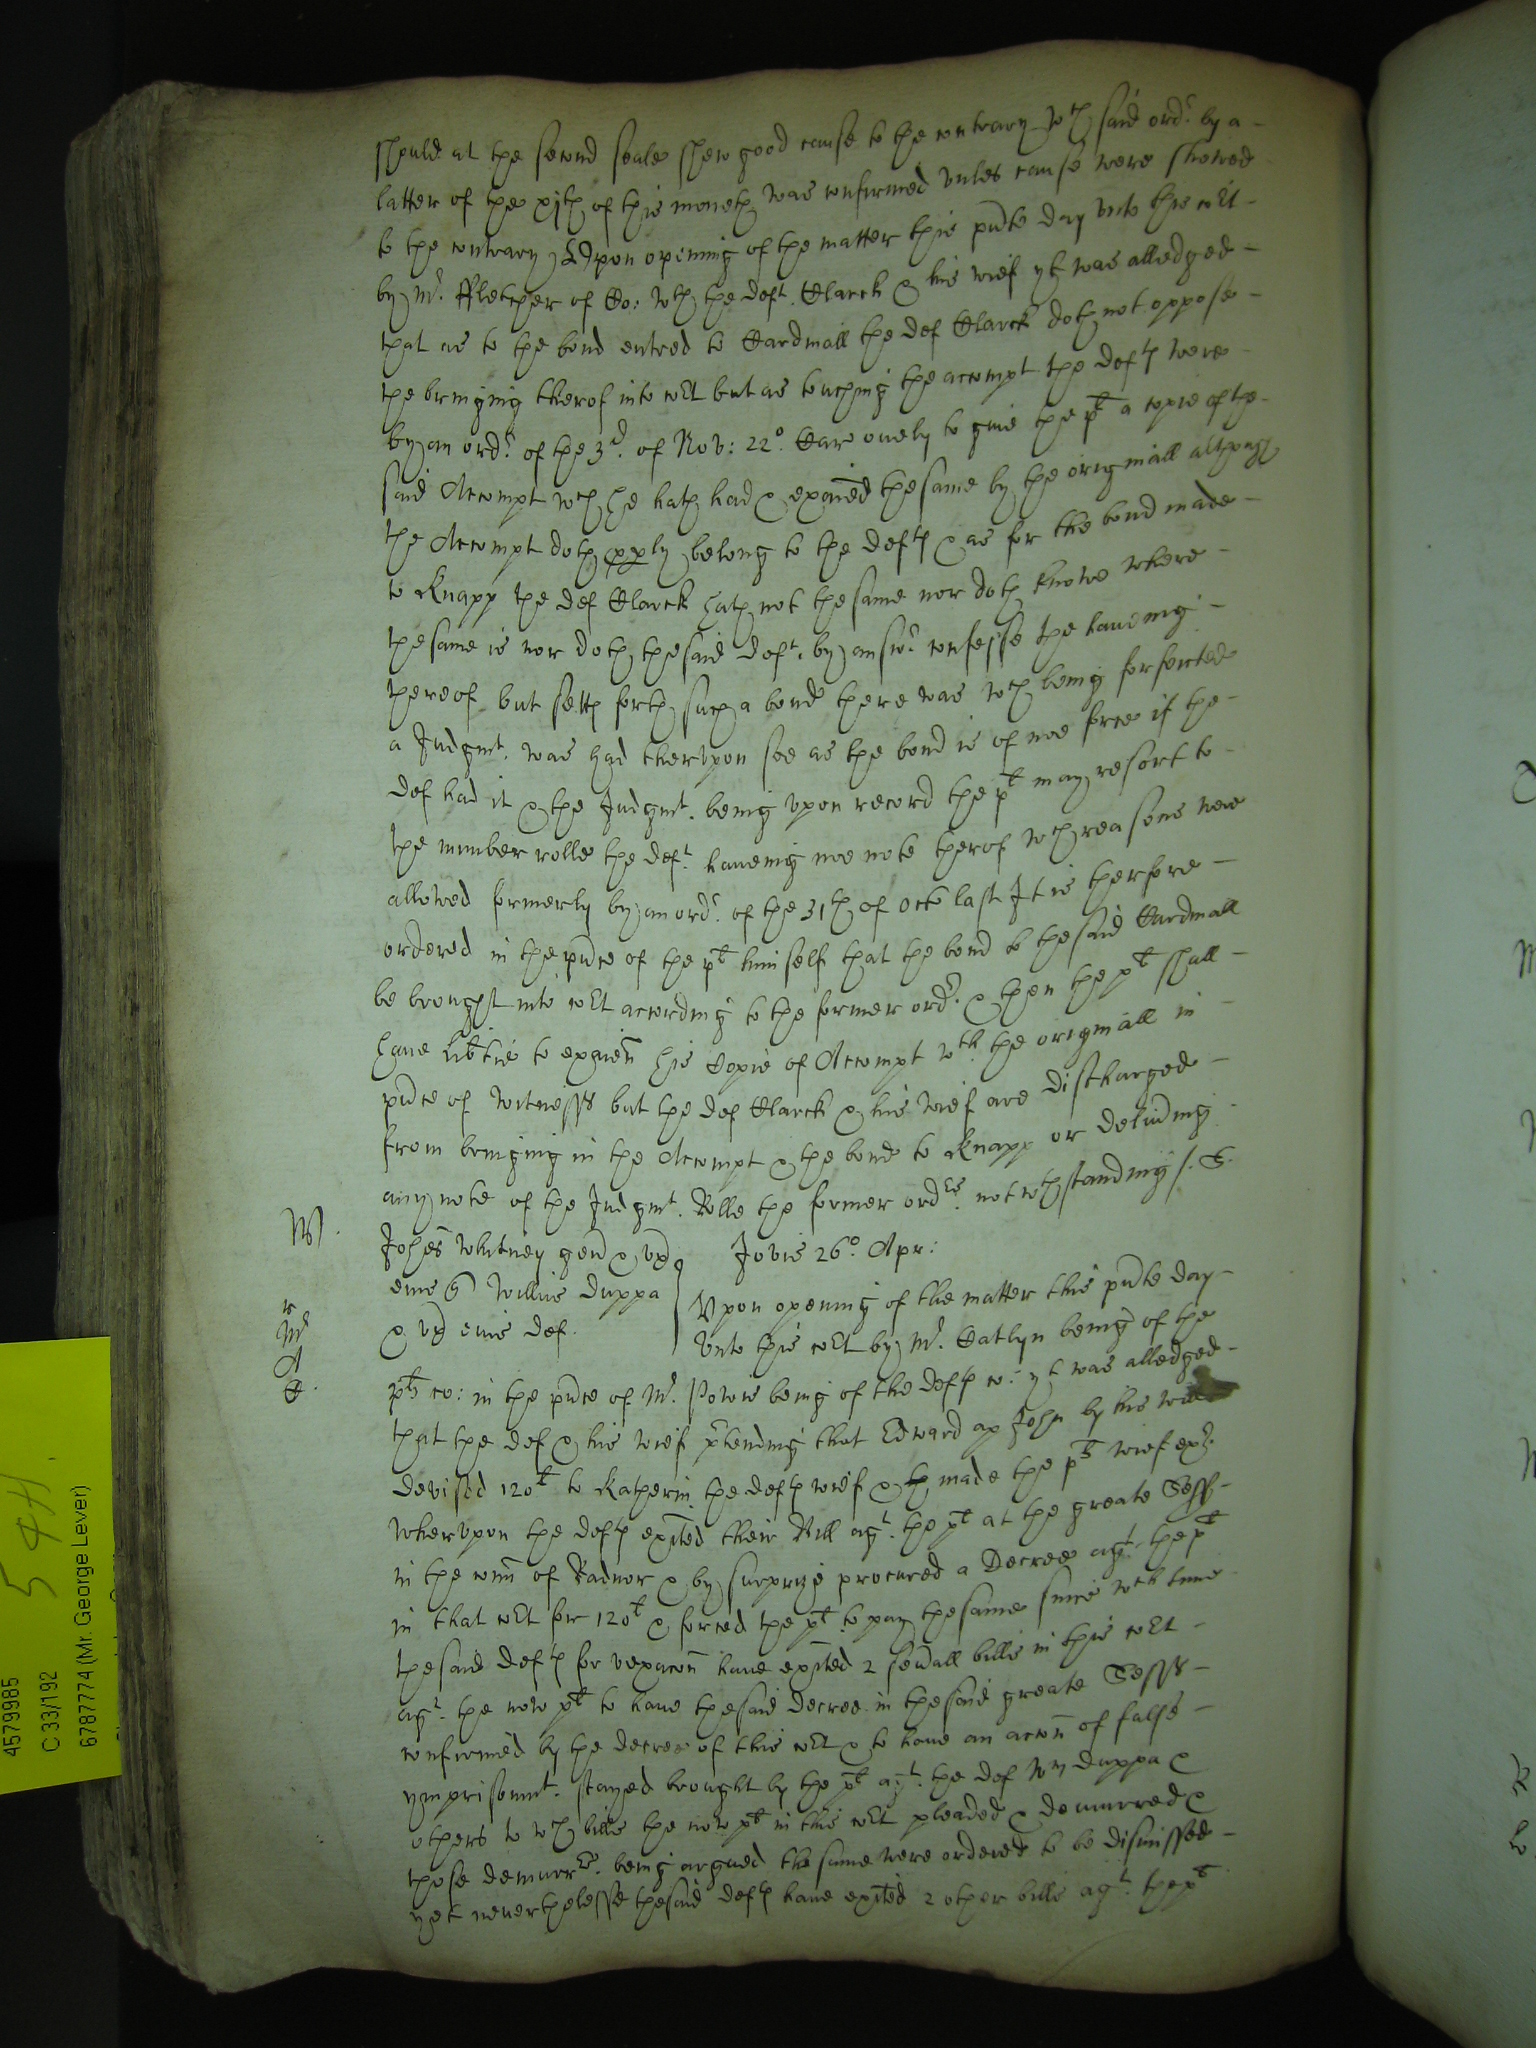 should at the second seale shew good cause to the contrary wch said ordr by a
latter of the xjth of this moneth was confirmed vnles cause were shewed
to the contrary Vpon opening of the matter this pnte day vnto this cort
by Mr. Fletcher of Co: wth the deft. Clarck & his wief yt was alledged
that as to the bond entred to Cardmall the def Clarck doth not oppose
the bringing therof into cort but as touching the accompt the defts were
by an ordr. of the 3d. of Nov: 22o. Car onely to giue the plt a copie of the
said Accompt wch he hath had & exaied the same by the originall although
the Accompt doth pply belong to the defts & as for the bond made
to Knapp the def Clarck hath not the same nor doth knowe where
the same is nor doth the said deft. by answr. confesse the haueing
thereof but setts forth such a bond there was wch being forfeited
a Judgmt. was had thervpon soe as the bond is of noe force if the
def had it & the Judgmt. being vpon record the plt may resort to
the number rolle the deft. haueing noe note therof wch reasons were
allowed formerly by an ordr. of the 31th of Octo last It is therfore
ordered in the pnce of the plt himself that the bond to the said Cardmall
be brought into cort according to the former ordr. & then the plt shall
haue libtie to exaien his Copie of Accompt wth the originall in
pnce of witnesses but the def Clarck & his wief are discharged
from bringing in the Accompt & the bond to Knapp or deliuing
any note of the Judgmt. Rolle the former ordrs. notwthstanding
W.
Johes Whitney gen & vx
eius Willus Duppa
& vx eius def.
Jovis 26o. Apr:
Vpon opening of the matter this pnte day
vnto this cort by Mr. Catlyn being of the
plts co: in the pnce of Mr. Powis being of the defts co: yt was alledged
that the def & his wief ptending that Edward ap John by his will
devised 120l to Katherin the defts wief & made the plts wief exr.
Whervpon the defts exited their Bill agt. the plt at the greate Sess
in the com of Radnor & by surprize procured a Decree agt. the plt
in that cort for 120l & forced the plt to pay the same since wch time
the said defts for vexacon haue exited 2 seuall bills in this cort
agt. the now plt to haue the said decree in the said greate Sesss
confirmed by the decree of this cort & to haue an accon of false
ymprisonmt. stayed brought by the plt agt. the def Wm Duppa &
others to wch bills the now plt in this cort pleaded & demurred &
those demurrrs. being argued the same were ordered to be dismissed
yet neuerthelesse the said defts haue exited 2 other bills agt. the plt
4579985
C 33/192
6787774 (Mr. George Lever)